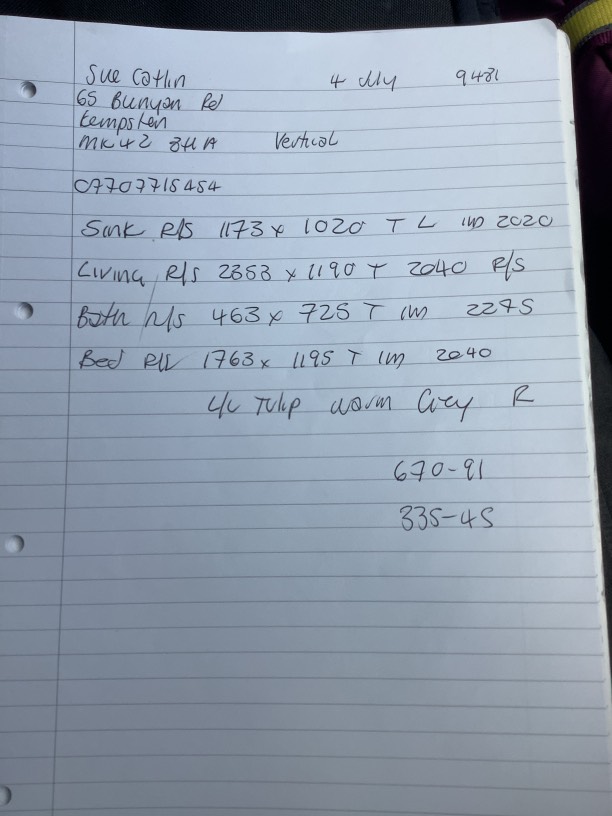 Sue Catlin 4 July 9481
65 Bunyan Rd
Kempston
MK42 8HA Vertical
07707715454
Sink R/S 1173 x 1020 T L 1M 2020
Living R/S 2353 x 1190 T 2040 R/S
Bath 463 x 725 T 1M 2275
Bed 1763 x 1195 T 1M 2040
Tulip Warm Grey R
670-91
335-45